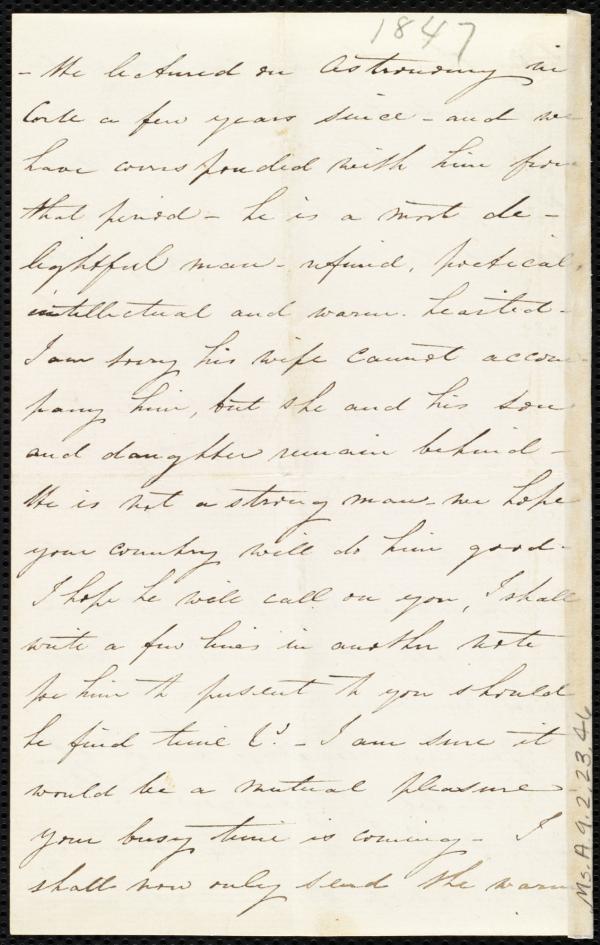 1847
- He lectured on Astronomy in
Cork a few years since - and we
have corresponded with him from
that period - he is a most de-
lightful man - refined, poetical,
intellectual and warm-hearted -
I am sorry his wife cannot accom
pany him, but she and his son
and daughter remain behind -
He is not a strong man - we hope
your country will do him good -
I hope he will call on you, I shall
write a few lines in another note
for him to present to you should
he find time - I am sure it
would be a mutual pleasure -
your busy time is coming - I
shall now only send the warm
Ms. A. 9. 2. 23, 46